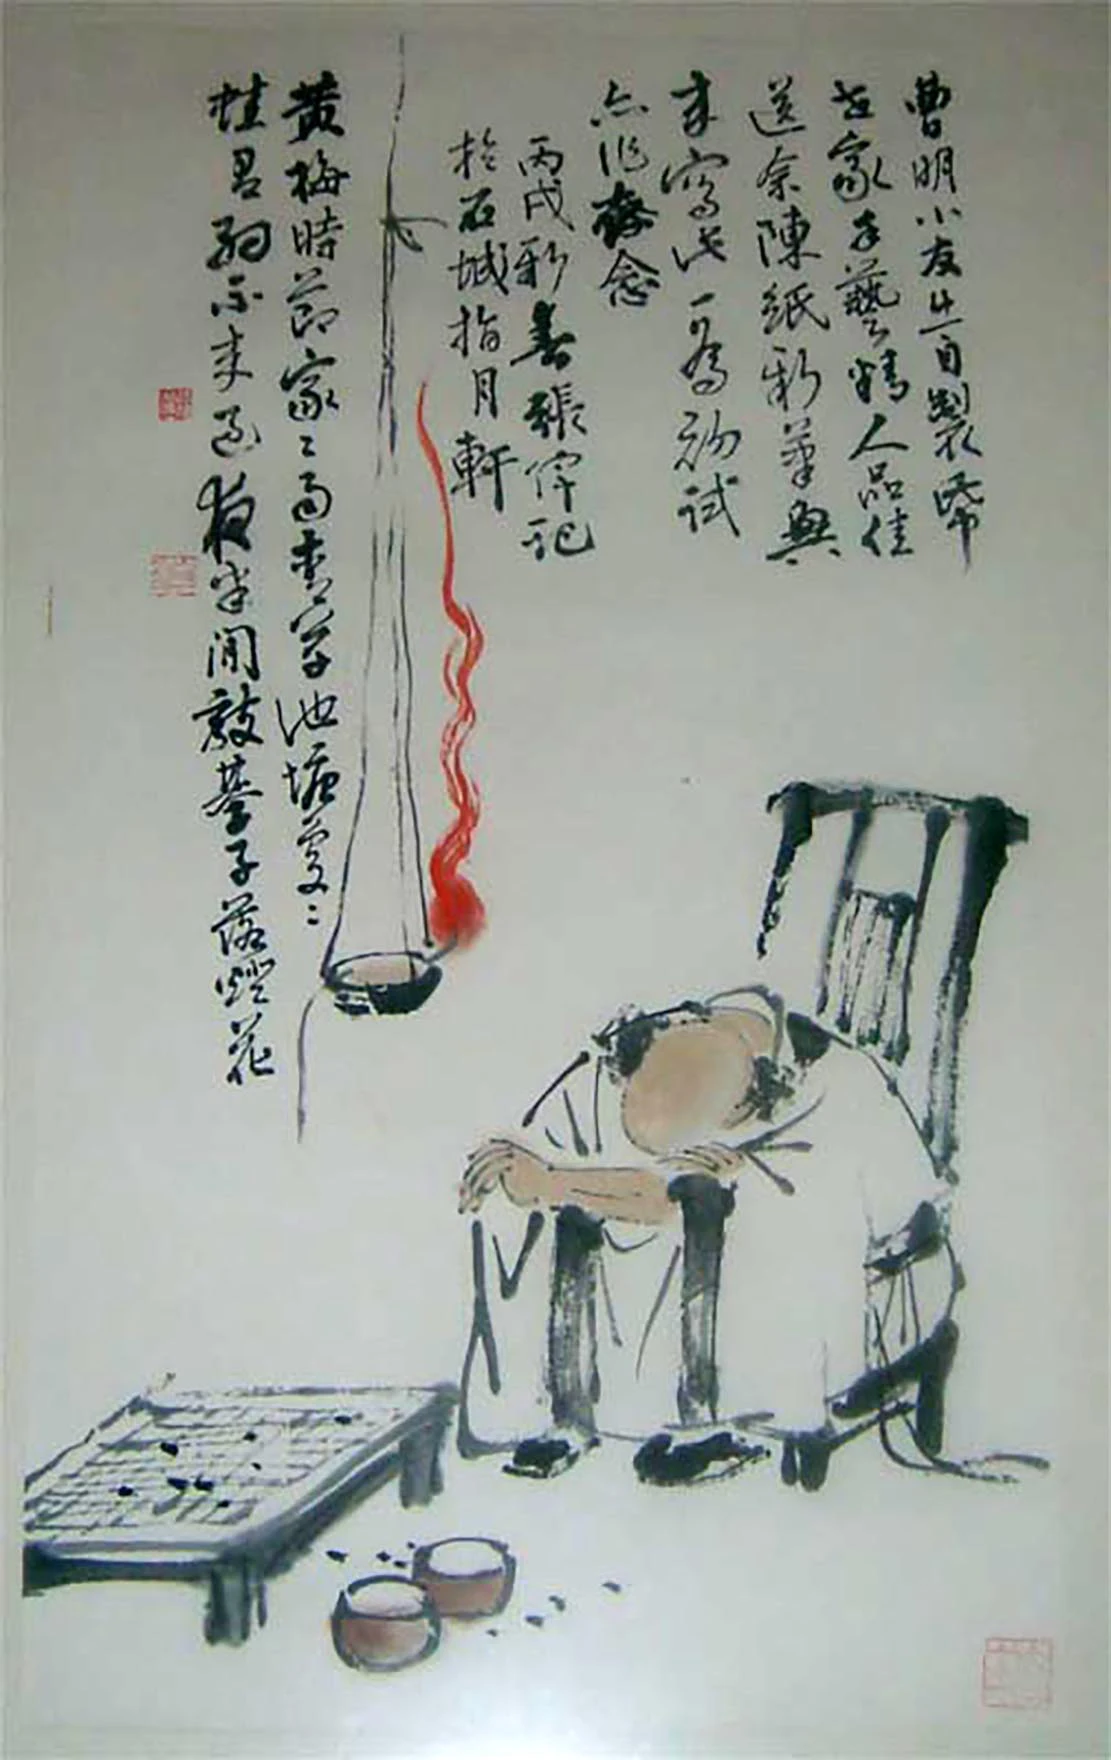 曹明小友出自製筆
世家手藝精人品佳
送余陳紙新筆興
来寫此一為初試
亦作存念
丙戌新春張偉記
於石城指月軒
黄梅時節家〻雨青草池塘處〻
蛙有約不来過夜半閒敲棊子落燈花